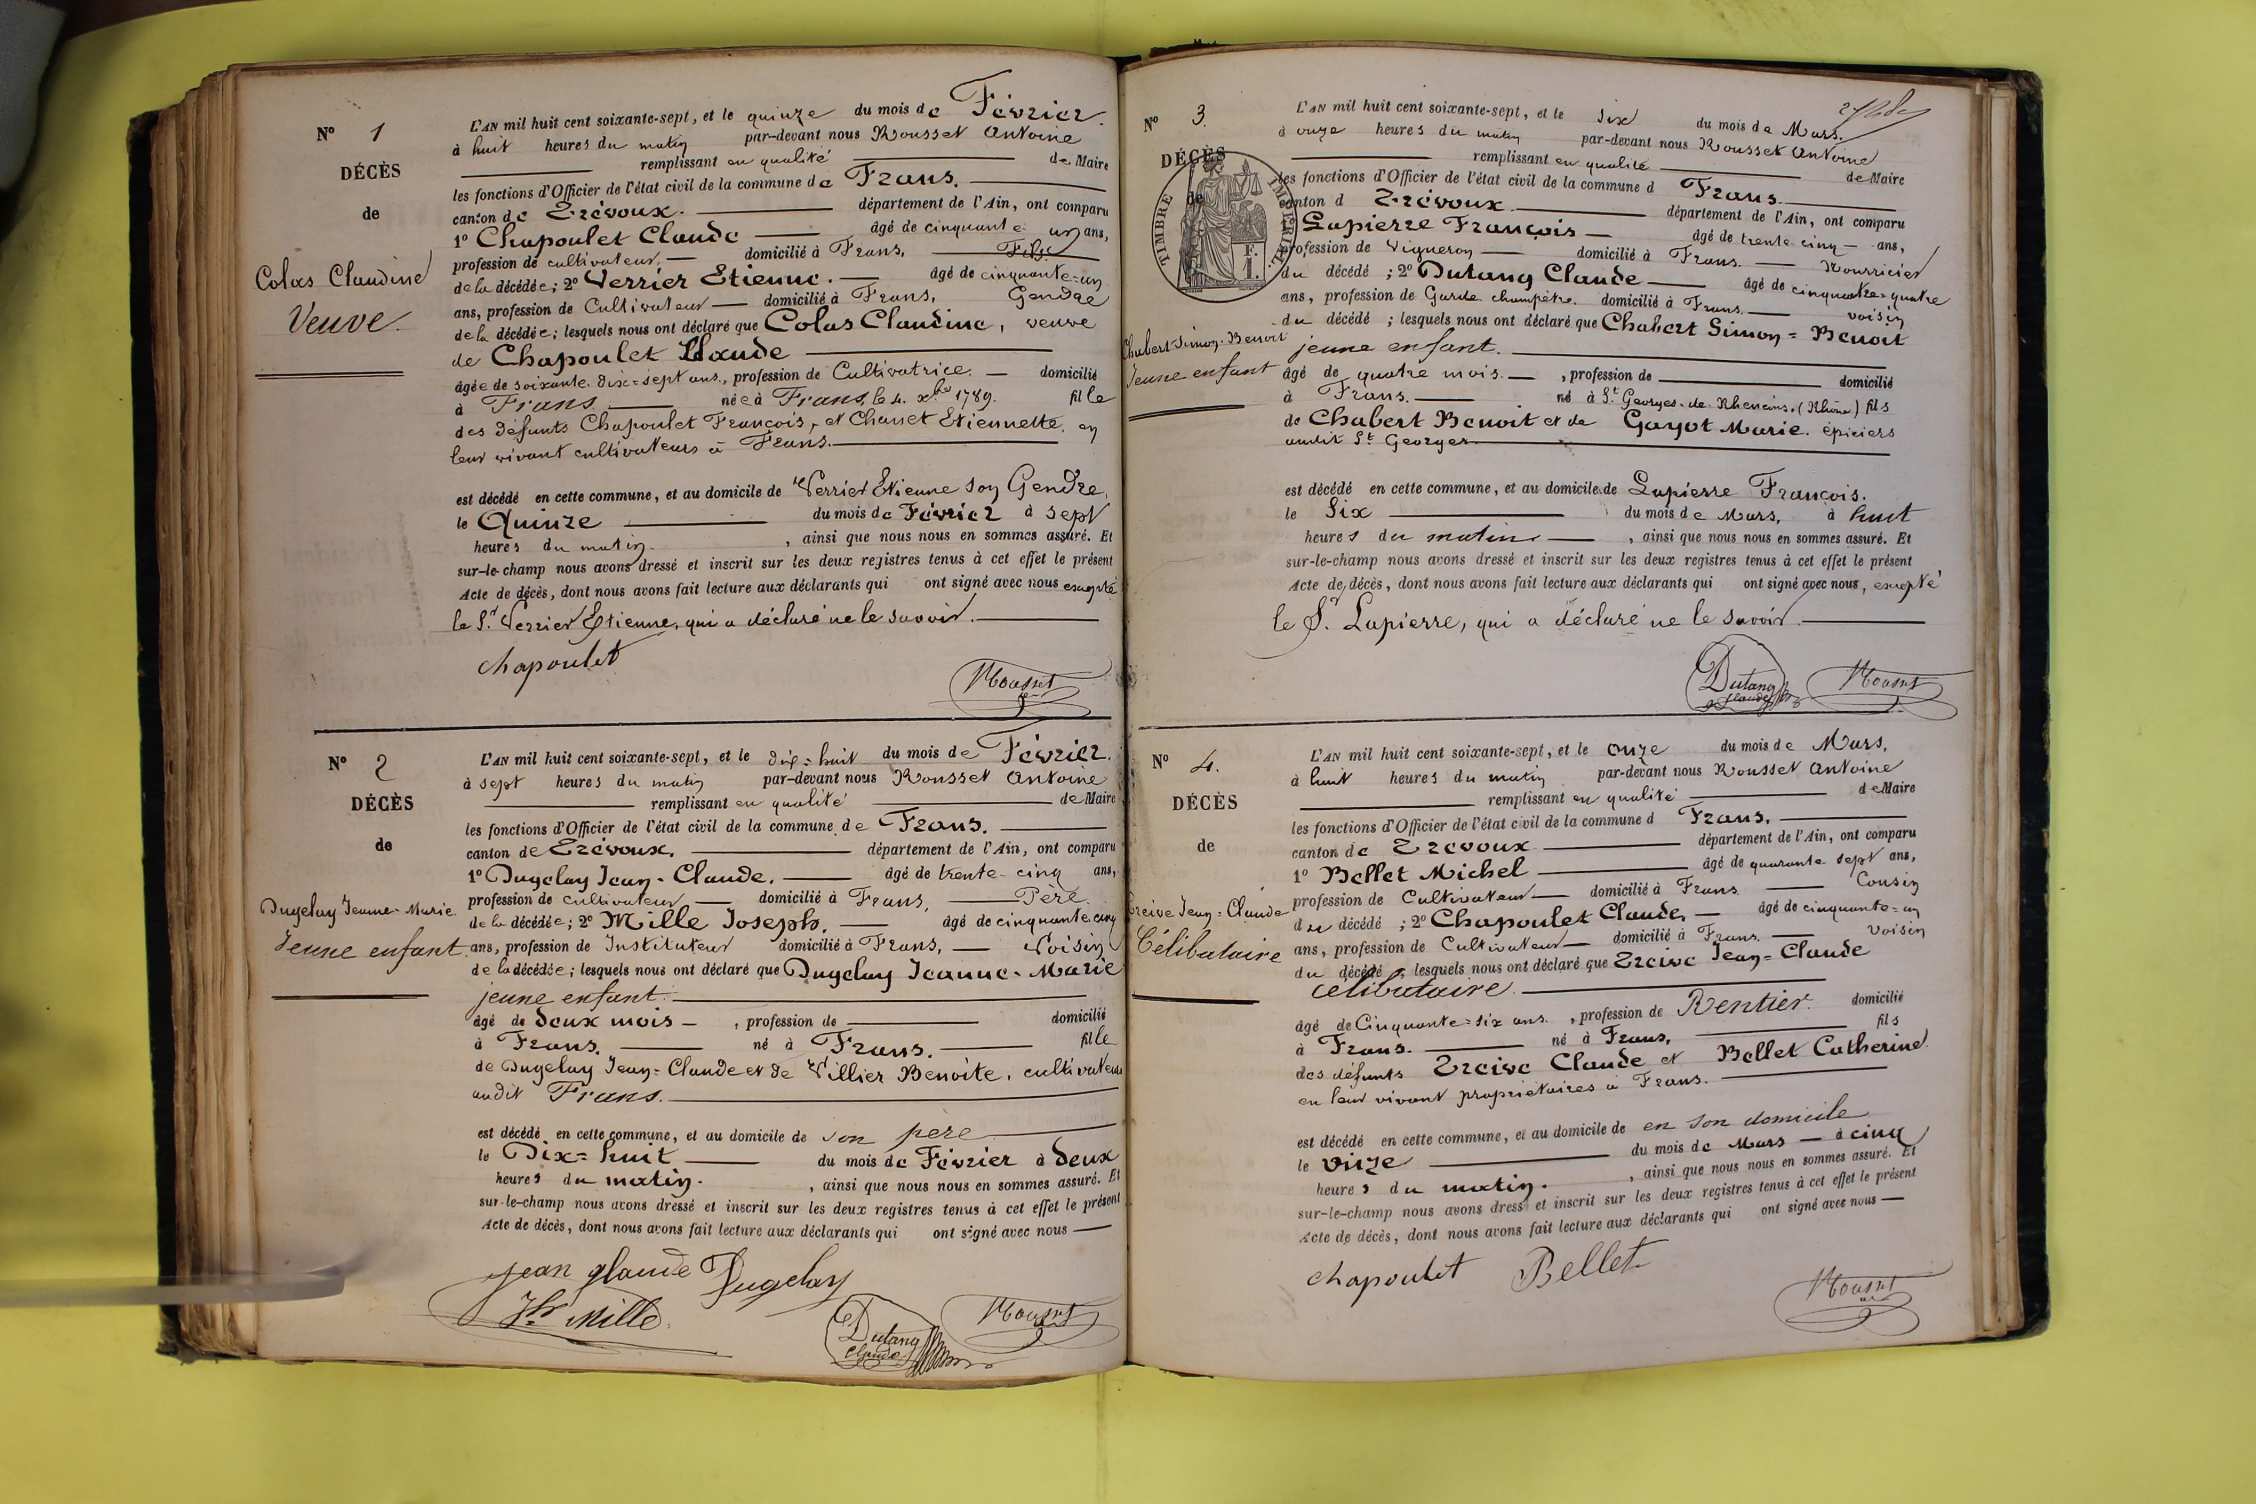 N° 1
DÉCÈS
de
Colas Claudine
Veuve.
L'AN mil huit cent soixante-sept, et le quinze du mois de Février.
à huit heures du matin par-devant nous Rousset Antoine
remplissant en qualité de Maire
les fonctions d'Officier de l'état civil de la commune de Frans.
canton de Trévoux. département de l'Ain, ont comparu
1° Chapoulet Claude âgé de cinquante un ans,
profession de cultivateur, domicilié à Frans, Fils
de la décédée; 2° Verrier Etienne. âgé de cinquante-un
ans, profession de Cultivateur domicilié à Frans, Gendre
de la décédée; lesquels nous ont déclaré que Colas Claudine, veuve
de Chapoulet Claude
âgée de soixante dix-sept ans, profession de Cultivatrice. domicilié
à Frans. née à Frans, le 4. xbre 1789. fille
des défunts Chapoulet François, et Chanet Etiennette. en
leur vivant cultivateurs à Frans.
est décédé en cette commune, et au domicile de Verrier Etienne son Gendre,
le Quinze du mois de Février à sept
heures du matin. , ainsi que nous nous en sommes assuré. Et
sur-le-champ nous avons dressé et inscrit sur les deux registres tenus à cet effet le présent
Acte de décès, dont nous avons fait lecture aux déclarants qui ont signé avec nous excepté
le Sr. Verrier Etienne, qui a déclaré ne le savoir.
chapoulet
Rousset
N° 2
DÉCÈS
de
Dugelay Jeanne-Marie
Jeune enfant.
L'AN mil huit cent soixante-sept, et le dix-huit du mois de Février.
à sept heures du matin par-devant nous Rousset Antoine
remplissant en qualité de Maire
les fonctions d'Officier de l'état civil de la commune de Frans.
canton de Trévoux. département de l'Ain, ont comparu
1° Dugelay Jean-Claude. âgé de trente-cinq ans,
profession de cultivateur domicilié à Frans, Père
de la décédée; 2° Mille Joseph. âgé de cinquante cinq
ans, profession de Instituteur domicilié à Frans, Voisin
de la décédée; lesquels nous ont déclaré que Dugelay Jeanne-Marie
jeune enfant.
âgé de deux mois , profession de domicilié
à Frans. né à Frans. fille
de Dugelay Jean-Claude et de Villier Benoite, cultivateurs
audit Frans.
est décédé en cette commune, et au domicile de son père
le Dix-huit du mois de Février à deux
heures du matin. , ainsi que nous nous en sommes assuré. Et
sur-le-champ nous avons dressé et inscrit sur les deux registres tenus à cet effet le présent
Acte de décès, dont nous avons fait lecture aux déclarants qui ont signé avec nous
jean glaude Dugelay
Jh Mille
Dutang
Claude
Rousset
N° 3.
DÉCÈS
de
TIMBRE IMPÉRIAL
1 F.
Chabert Simon-Benoit
Jeune enfant
L'AN mil huit cent soixante-sept, et le six du mois de Mars.
à onze heures du matin par-devant nous Rousset Antoine
remplissant en qualité de Maire
les fonctions d'Officier de l'état civil de la commune d Frans.
canton d Trévoux département de l'Ain, ont comparu
Lapierre François âgé de trente cinq ans,
profession de Vigneron domicilié à Frans. Nourricier
du décédé; 2° Dutang Claude âgé de cinquante-quatre
ans, profession de Garde champêtre. domicilié à Frans. voisin
du décédé; lesquels nous ont déclaré que Chabert Simon-Benoit
jeune enfant.
âgé de quatre mois. , profession de domicilié
à Frans. né à St. Georges-de-Rheneins. (Rhône) fils
de Chabert Benoit et de Gayot Marie. épiciers
audit St. Georges
est décédé en cette commune, et au domicile de Lapierre François.
le Six du mois de Mars, à huit
heures du matin , ainsi que nous nous en sommes assuré. Et
sur-le-champ nous avons dressé et inscrit sur les deux registres tenus à cet effet le présent
Acte de décès, dont nous avons fait lecture aux déclarants qui ont signé avec nous, excepté
le Sr. Lapierre, qui a déclaré ne le savoir.
Dutang
Claude
Rousset
N° 4.
DÉCÈS
de
Treive Jean-Claude
Célibataire
L'AN mil huit cent soixante-sept, et le onze du mois de Mars,
à huit heures du matin par-devant nous Rousset Antoine
remplissant en qualité de Maire
les fonctions d'Officier de l'état civil de la commune d Frans.
canton de Trévoux département de l'Ain, ont comparu
1° Bellet Michel âgé de quarante sept ans,
profession de Cultivateur domicilié à Frans Cousin
du décédé; 2° Chapoulet Claude, âgé de cinquante-un
ans, profession de Cultivateur domicilié à Frans. voisin
du décédé, lesquels nous ont déclaré que Treive Jean-Claude
célibataire.
âgé de Cinquante-six ans. , profession de Rentier. domicilié
à Frans. né à Frans, fils
des défunts Treive Claude et Bellet Catherine
en leur vivant propriétaires à Frans.
est décédé en cette commune, et au domicile de en son domicile
le onze du mois de Mars à cinq
heures du matin. , ainsi que nous nous en sommes assuré. Et
sur-le-champ nous avons dressé et inscrit sur les deux registres tenus à cet effet le présent
Acte de décès, dont nous avons fait lecture aux déclarants qui ont signé avec nous
chapoulet Bellet
Rousset